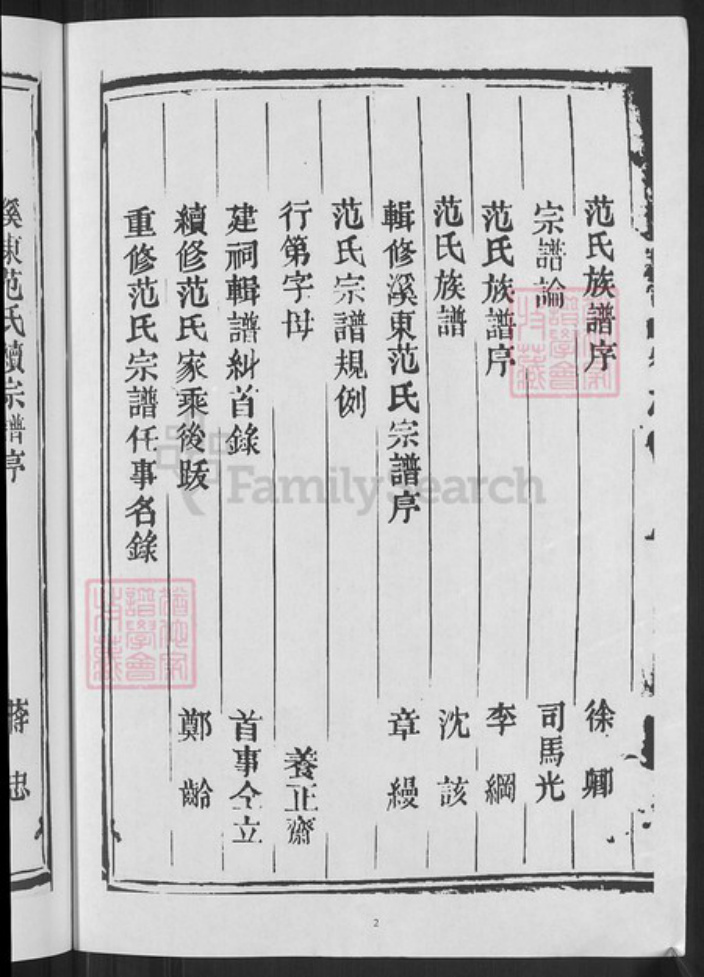 范氏族譜序 徐卿
宗譜論 司馬光
范氏族譜序 李綱
范氏族譜 沈該
輯修溪東范氏宗譜序 章縵
范氏宗譜規例
行第字母 養正齋
建祠輯譜糾首錄 首事仝立
續修范氏家乘後跋 鄭齡
重修范氏宗譜仟事名錄
溪東范氏續宗譜序 蔣忠
FamilySearch
譜學會
譜學會
2